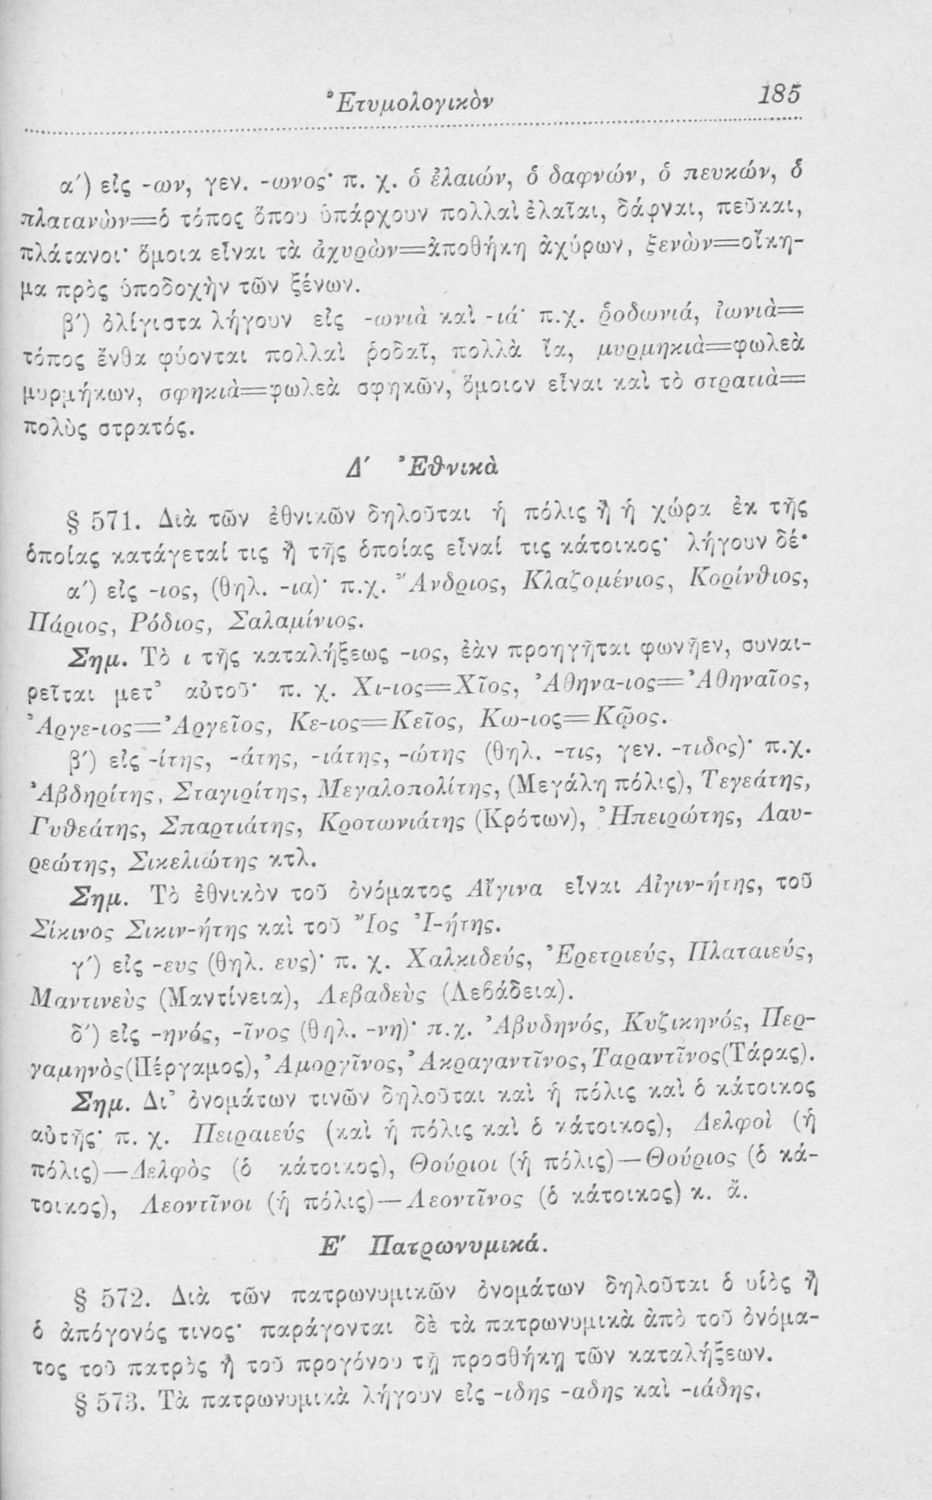 Ἐτυμολογικὸν 185
α΄) εἰς -ων, γεν. -ωνος· π. χ. ὁ ἐλαιών, ὁ δαφνών, ὁ πευκών, ὁ
πλατανὼν=ὁ τόπος ὅπου ὑπάρχουν πολλαὶ ἐλαῖαι, δάφναι, πεῦκαι,
πλάτανοι· ὅμοια εἶναι τὰ ἀχυρὼν=ἀποθήκη ἀχύρων, ξενὼν=οἴκη-
μα πρὸς ὑποδοχὴν τῶν ξένων.
β΄) ὀλίγιστα λήγουν εἰς -ωνιὰ καὶ -ιά· π.χ. ῥοδωνιά, ἰωνιὰ=
τόπος ἔνθα φύονται πολλαὶ ῥοδαῖ, πολλὰ ἴα, μυρμηκιὰ=φωλεὰ
μυρμήκων, σφηκιὰ=φωλεὰ σφηκῶν, ὅμοιον εἶναι καὶ τὸ στρατιὰ=
πολὺς στρατός.
Δ΄ Ἐθνικὰ
§ 571. Διὰ τῶν ἐθνικῶν δηλοῦται ἡ πόλις ἢ ἡ χώρα ἐκ τῆς
ὁποίας κατάγεταί τις ἢ τῆς ὁποίας εἶναί τις κάτοικος· λήγουν δέ·
α΄) εἰς -ιος, (θηλ. -ια)· π.χ. Ἄνδριος, Κλαζομένιος, Κορίνθιος,
Πάριος, Ρόδιος, Σαλαμίνιος.
Σημ. Τὸ ι τῆς καταλήξεως -ιος, ἐὰν προηγῆται φωνῆεν, συναι-
ρεῖται μετ᾽ αὐτοῦ· π. χ. Χι-ιος=Χῖος, Ἀθηνα-ιος=Ἀθηναῖος,
Ἀργε-ιος=Ἀργεῖος, Κε-ιος=Κεῖος, Κω-ιος=Κῷος.
β΄) εἰς -ίτης, -άτης, -ιάτης, -ώτης (θηλ. -τις, γεν. -τιδος)· π.χ.
Ἀβδηρίτης, Σταγιρίτης, Μεγαλοπολίτης, (Μεγάλη πόλις), Τεγεάτης,
Γυθεάτης, Σπαρτιάτης, Κροτωνιάτης (Κρότων), Ἠπειρώτης, Λαυ-
ρεώτης, Σικελιώτης κτλ.
Σημ. Τὸ ἐθνικὸν τοῦ ὀνόματος Αἴγινα εἶναι Αἰγιν-ήτης, τοῦ
Σίκινος Σικιν-ήτης καὶ τοῦ Ἴος Ἰ-ήτης.
γ΄) εἰς -ευς (θηλ. ευς)· π. χ. Χαλκιδεύς, Ἐρετριεύς, Πλαταιεύς,
Μαντινεὺς (Μαντίνεια), Λεβαδεὺς (Λεβάδεια).
δ΄) εἰς -ηνός, -ῖνος (θηλ. -νη)· π.χ. Ἀβυδηνός, Κυζικηνός, Περ-
γαμηνὸς(Πέργαμος), Ἀμοργῖνος, Ἀκραγαντῖνος, Ταραντῖνος(Τάρας).
Σημ. Δι᾽ ὀνομάτων τινῶν δηλοῦται καὶ ἡ πόλις καὶ ὁ κάτοικος
αὐτῆς· π. χ. Πειραιεύς (καὶ ἡ πόλις καὶ ὁ κάτοικος), Δελφοὶ (ἡ
πόλις)—Δελφὸς (ὁ κάτοικος), Θούριοι (ἡ πόλις)—Θούριος (ὁ κά-
τοικος), Λεοντῖνοι (ἡ πόλις)—Λεοντῖνος (ὁ κάτοικος) κ. ἄ.
Ε΄ Πατρωνυμικά.
§ 572. Διὰ τῶν πατρωνυμικῶν ὀνομάτων δηλοῦται ὁ υἱὸς ἢ
ὁ ἀπόγονός τινος· παράγονται δὲ τὰ πατρωνυμικὰ ἀπὸ τοῦ ὀνόμα-
τος τοῦ πατρὸς ἢ τοῦ προγόνου τῇ προσθήκῃ τῶν καταλήξεων.
§ 573. Τὰ πατρωνυμικὰ λήγουν εἰς -ιδης -αδης καὶ -ιάδης.